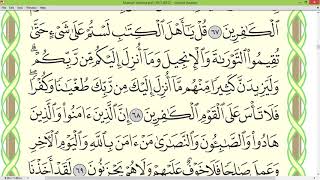 ٱلۡكَٰفِرِينَ ٦٧ قُلۡ يَٰٓأَهۡلَ ٱلۡكِتَٰبِ لَسۡتُمۡ عَلَىٰ شَيۡءٍ حَتَّىٰ
تُقِيمُواْ ٱلتَّوۡرَىٰةَ وَٱلۡإِنجِيلَ وَمَآ أُنزِلَ إِلَيۡكُم مِّن رَّبِّكُمۡۗ
وَلَيَزِيدَنَّ كَثِيرٗا مِّنۡهُم مَّآ أُنزِلَ إِلَيۡكَ مِن رَّبِّكَ طُغۡيَٰنٗا وَكُفۡرٗاۖ
فَلَا تَأۡسَ عَلَى ٱلۡقَوۡمِ ٱلۡكَٰفِرِينَ ٦٨ إِنَّ ٱلَّذِينَ ءَامَنُواْ وَٱلَّذِينَ
هَادُواْ وَٱلصَّٰبِـُٔونَ وَٱلنَّصَٰرَىٰ مَنۡ ءَامَنَ بِٱللَّهِ وَٱلۡيَوۡمِ ٱلۡأٓخِرِ
وَعَمِلَ صَٰلِحٗا فَلَا خَوۡفٌ عَلَيۡهِمۡ وَلَا هُمۡ يَحۡزَنُونَ ٦٩ لَقَدۡ أَخَذۡنَا